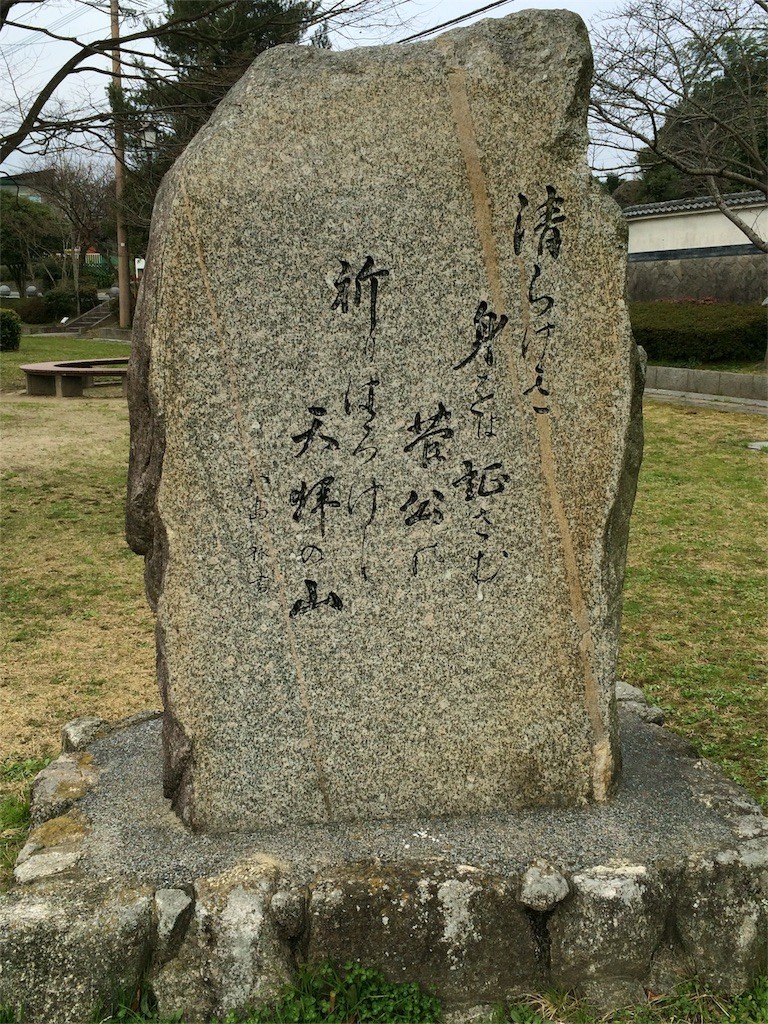 清らけき
身をは証さむ
菅公の
祈りはろけし
天拝の山